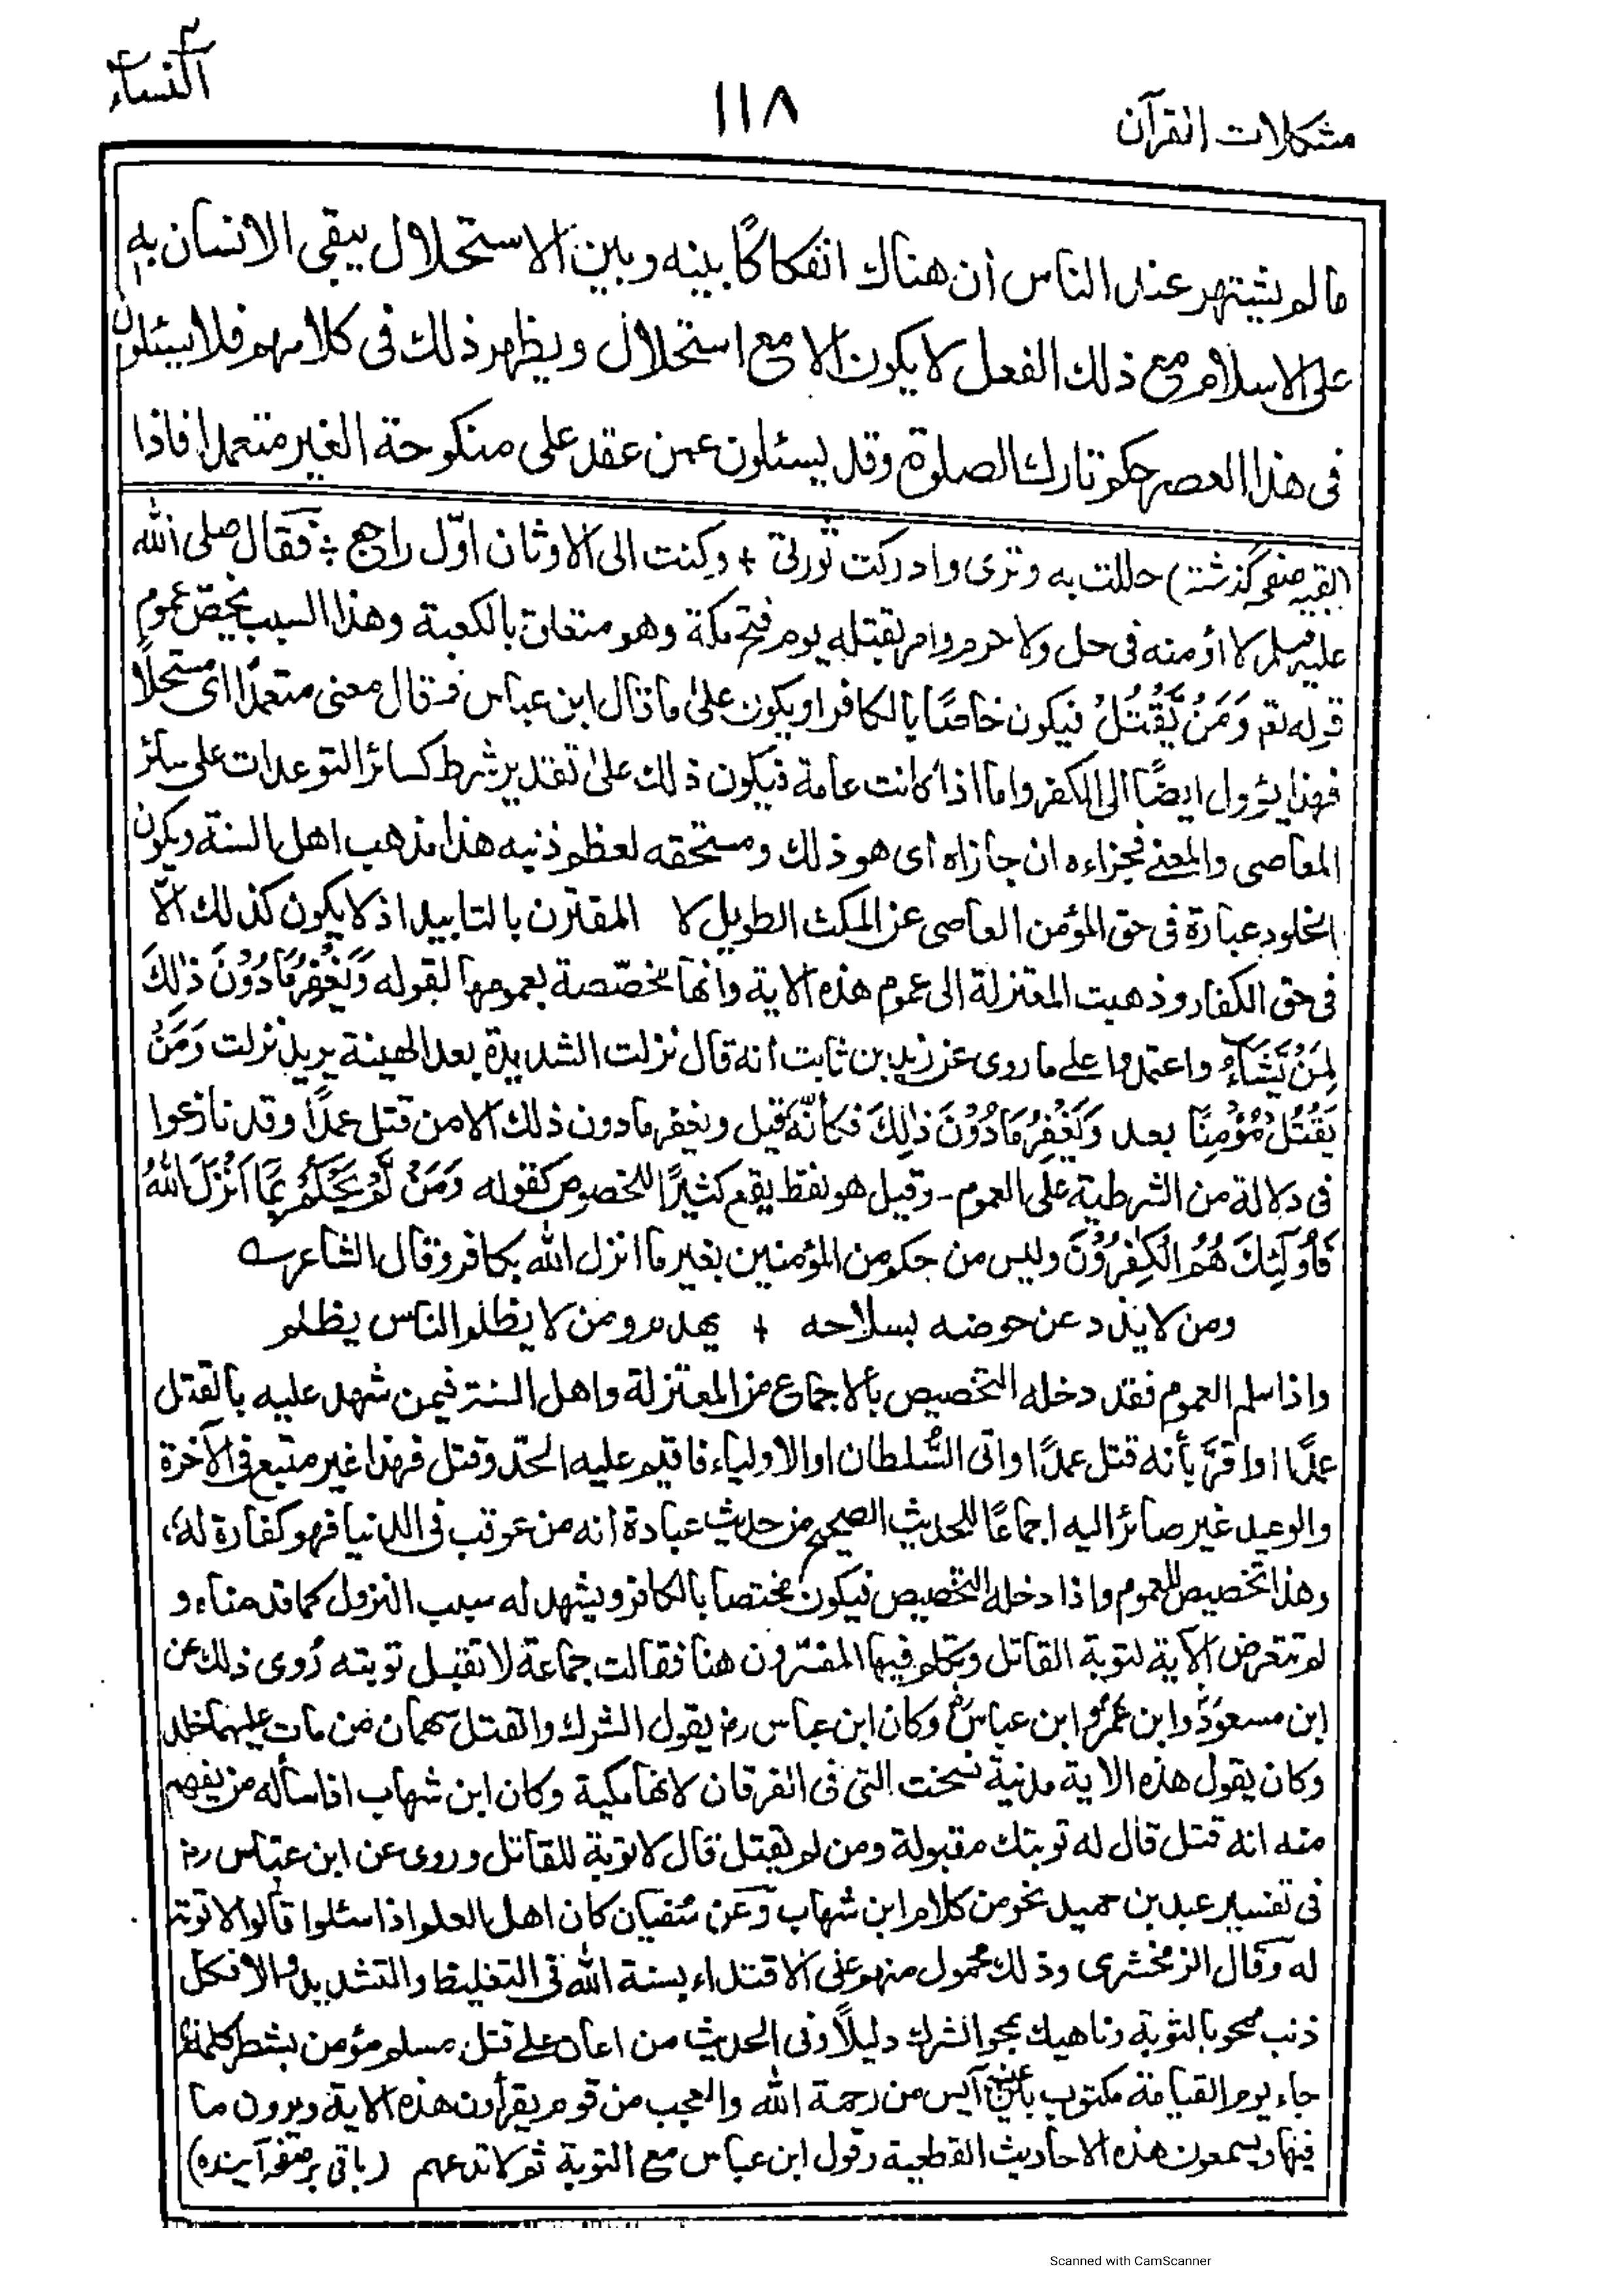 مشكلات القرآن
١١٨
النساء
ما لم يشتهر عند الناس أن هناك انفكاكًا بينه وبين الاستحلال يبقى الانسان به
على الاسلام مع ذلك الفعل لا يكون الا مع استحلال ويظهر ذلك فى كلامهم فلا يسئلون
فى هذا العصر حكم تارك الصلوة وقد يسئلون عمن عقد على منكوحة الغير متعمدا فاذا
(بقيه صفحه گذشته) حللت به وترى وادركت ثورتى + وكنت الى الاوثان اوّل راجع ؞ فقال صلى الله
عليه وسلم لا اؤمنه فى حل ولا حرم وامر بقتله يوم فتح مكة وهو متعلق بالكعبة وهذا السبب يخص عموم
قوله تع وَمَنْ يَّقْتُلْ فيكون خاصًا بالكافر او يكون على ما قال ابن عباس فـ قال معنى متعمدًا اى مستحلًا
فهذا يؤول ايضًا الى الكفر واما اذا كانت عامة فيكون ذلك على تقدير شرط كسائر التوعدات على سائر
المعاصى والمعنے فجزاءه ان جازاه أى هو ذلك ومستحقه لعظم ذنبه هذا مذهب اهل السنة ويكون
الخلود عبارة فى حق المؤمن العاصى عن المكث الطويل لا المقترن بالتابيد اذ لا يكون كذلك الّا
فى حق الكفار وذهبت المعتزلة الى عموم هذه الاية وانها مخصّصة بعمومها لقوله وَيَغْفِرُ مَا دُوْنَ ذٰلِكَ
لِمَنْ يَّشَآءُ واعتمدوا على ما روى عن زيد بن ثابت انه قال نزلت الشديدة بعد الهينة يريد نزلت وَمَنْ
يَقْتُلْ مُؤْمِنًا بعد وَيَغْفِرُ مَا دُوْنَ ذٰلِكَ فكأنّه قيل ويغفر ما دون ذلك الا من قتل عمدًا وقد نازعوا
فى دلالة من الشرطية على العموم - وقيل هو لفظ يقع كثيرًا للخصوص كقوله وَمَنْ لَّمْ يَحْكُمْ بِمَا اَنْزَلَ اللّٰهُ
فَاُولٰٓئِكَ هُمُ الْكٰفِرُوْنَ وليس من حكم من المؤمنين بغير ما انزل الله بكافر وقال الشاعر
ومن لا يذد عن حوضه بسلاحه + يهدم ومن لا يظلم الناس يظلم
واذا سلم العموم فقد دخله التخصيص بالاجماع من المعتزلة واهل السنة فيمن شهد عليه بالقتل
عمدًا او اقرَّ بأنه قتل عمدًا واتى السُّلطان او الاولياء فاقيم عليه الحدّ وقتل فهذا غير متبع فى الآخرة
والوعيد غير صائر اليه اجماعًا للحديث الصحيح من حديث عبادة انه من عوقب فى الدنيا فهو كفارة له،
وهذا تخصيص للعموم واذا دخله التخصيص فيكون مختصا بالكافر ويشهد له سبب النزول كما قدمناه و
لم تتعرض الآية لتوبة القاتل وتكلم فيها المفسّرون هنا فقالت جماعة لا تقبل توبته رُوى ذلك عن
ابن مسعودؓ وابن عمرؓ وابن عباسؓ وكان ابن عباس رض يقول الشرك والقتل سهمان من مات عليهما خلد
وكان يقول هذه الاية مدنية نسخت التى فى الفرقان لانها مكية وكان ابن شهاب اذا سأله من يفهم
منه انه قتل قال له توبتك مقبولة ومن لم يقتل قال لا توبة للقاتل وروى عن ابن عبّاس رض
فى تفسير عبد بن حميد نحو من كلام ابن شهاب وعن سُفيان كان اهل العلم اذا سئلوا قالوا لا توبة
له وقال الزمخشرى وذلك محمول منهم على الاقتداء بسنة الله فى التغليظ والتشديد والا فكل
ذنب محو بالتوبة وناهيك بمحو الشرك دليلًا وفى الحديث من اعان على قتل مسلم مؤمن بشطر كلمة
جاء يوم القيامة مكتوب بين عينيه آيس من رحمة الله والعجب من قوم يقرأون هذه الاية ويرون ما
فيها ويسمعون هذه الاحاديث القطعية وقول ابن عباس مع التوبة ثم لا تدعهم (باقى بر صفحه آينده)
Scanned with CamScanner